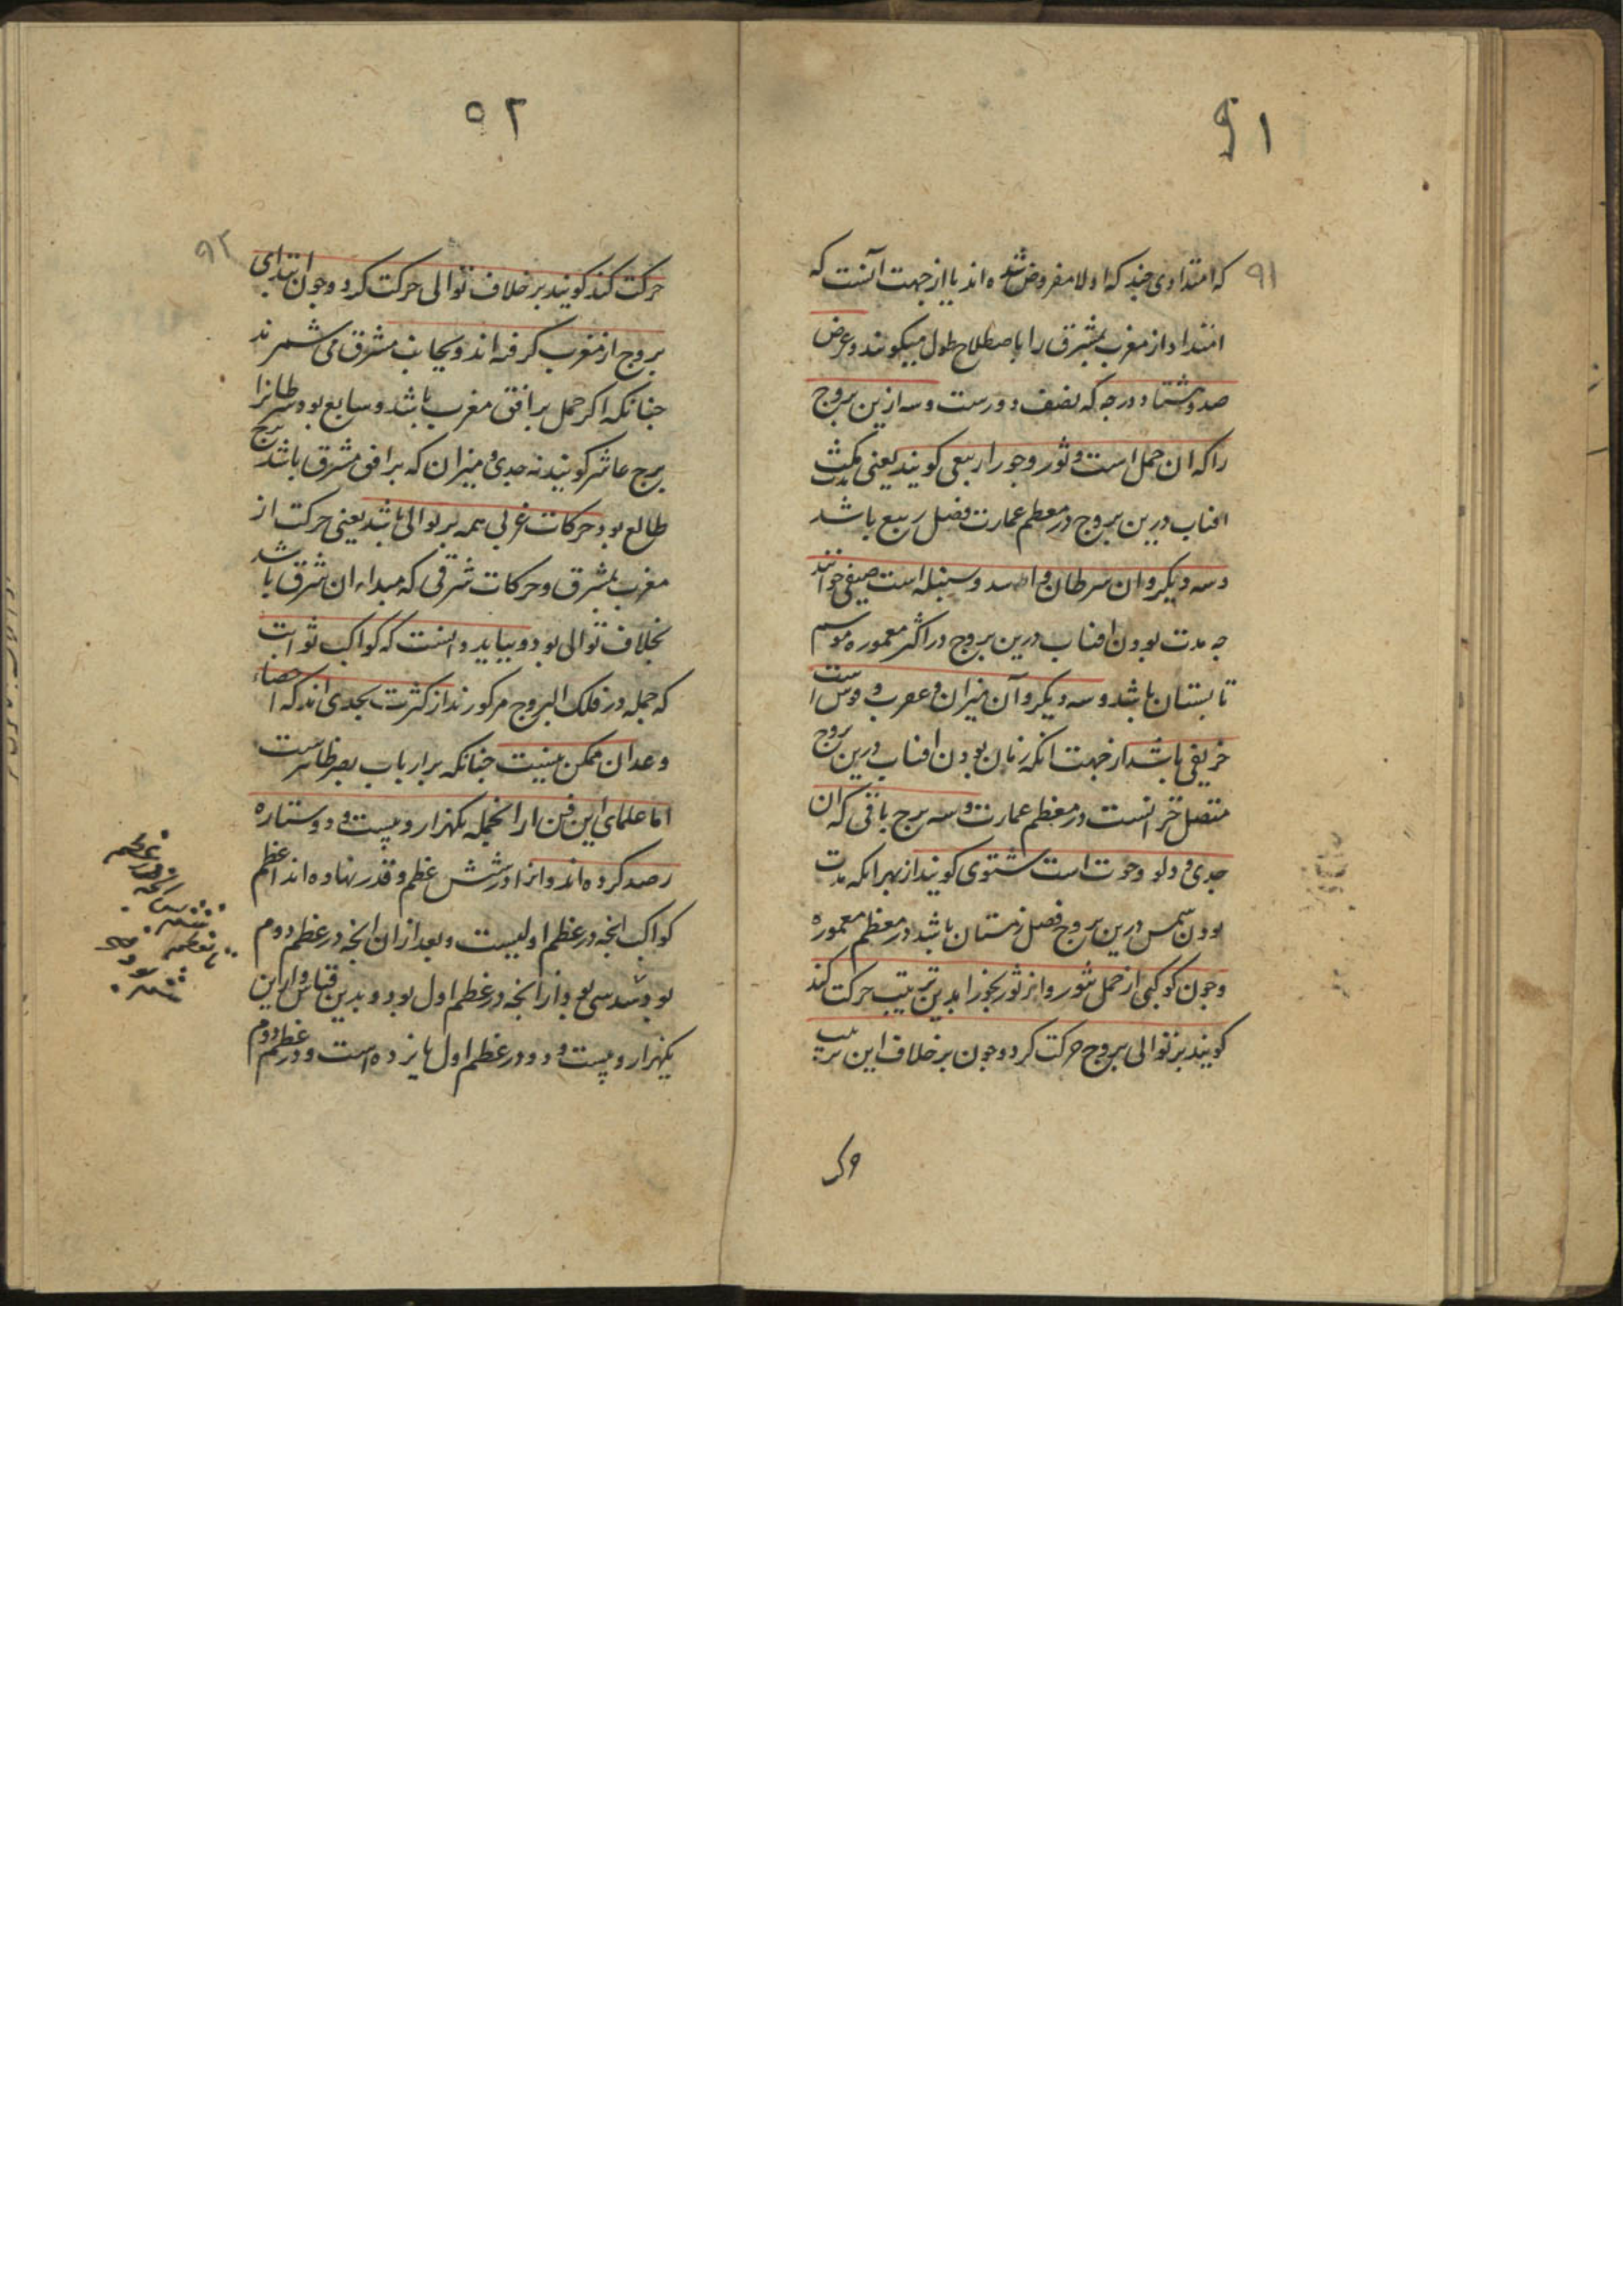 ۵۱
۹۱
که امتدادی چند که اولا مفروض شده اند یا از جهت آنست که
امتداد از مغرب بمشرق را باصطلاح طول میکویند و عرض
صد و هشتاد درجه که نصف دورست و سه ازین بروج
را که ان حمل است و ثور و جوزا ربیعی کویند یعنی مکث
افتاب درین بروج در معظم عمارت فصل ربیع باشد
و سه دیکر و ان سرطان و اسد و سنبله است صیفی خوانند
چه مدت بودن افتاب درین بروج در اکثر معموره موسم
تابستان باشد و سه دیکر و آن میزان و عقرب و قوس است
خریفی باشد از جهت انکه زمان بودن افتاب درین بروج
متصل خزانست در معظم عمارت و سه برج باقی که ان
جدی و دلو و حوت است شتوی کویند از بهر انکه مدت
بودن شمس درین بروج فصل زمستان باشد در معظم معموره
و چون کوکبی از حمل بثور و از ثور بجوزا بدین ترتیب حرکت کند
کویند بر توالی بروج حرکت کرد و چون بر خلاف این ترتیب
۵۲
۹۲
حرکت کند کویند بر خلاف توالی حرکت کرد و چون ابتدای
بروج از مغرب کرفته اند و بجانب مشرق می شمرند
چنانکه اکر حمل بر افق مغرب باشد و سابع بود سرطانرا
برج عاشر کویند نه جدی و میزان که برج بر افق مشرق باشد
طالع بود حرکات غربی همه بر توالی باشد یعنی حرکت از
مغرب بمشرق و حرکات شرقی که مبداء ان شرق باشد
بخلاف توالی بود و بباید دانست که کواکب ثوابت
که جمله در فلک البروج مرکوزند از کثرت بحدی اند که احصاء
و عد ان ممکن نیست چنانکه بر ارباب بصر ظاهرست
اما علمای این فن از انجمله یکهزار و بیست و دو ستاره
رصد کرده اند و انرا در شش عظم و قدر نهاده اند اعظم
کواکب انچه در عظم اولیست و بعد از ان انچه در عظم دوم
بود سدسی بود از انچه در عظم اول بود و بدین قیاس و از این
یکهزار و بیست و دو در عظم اول پانزده است و در عظم دوم